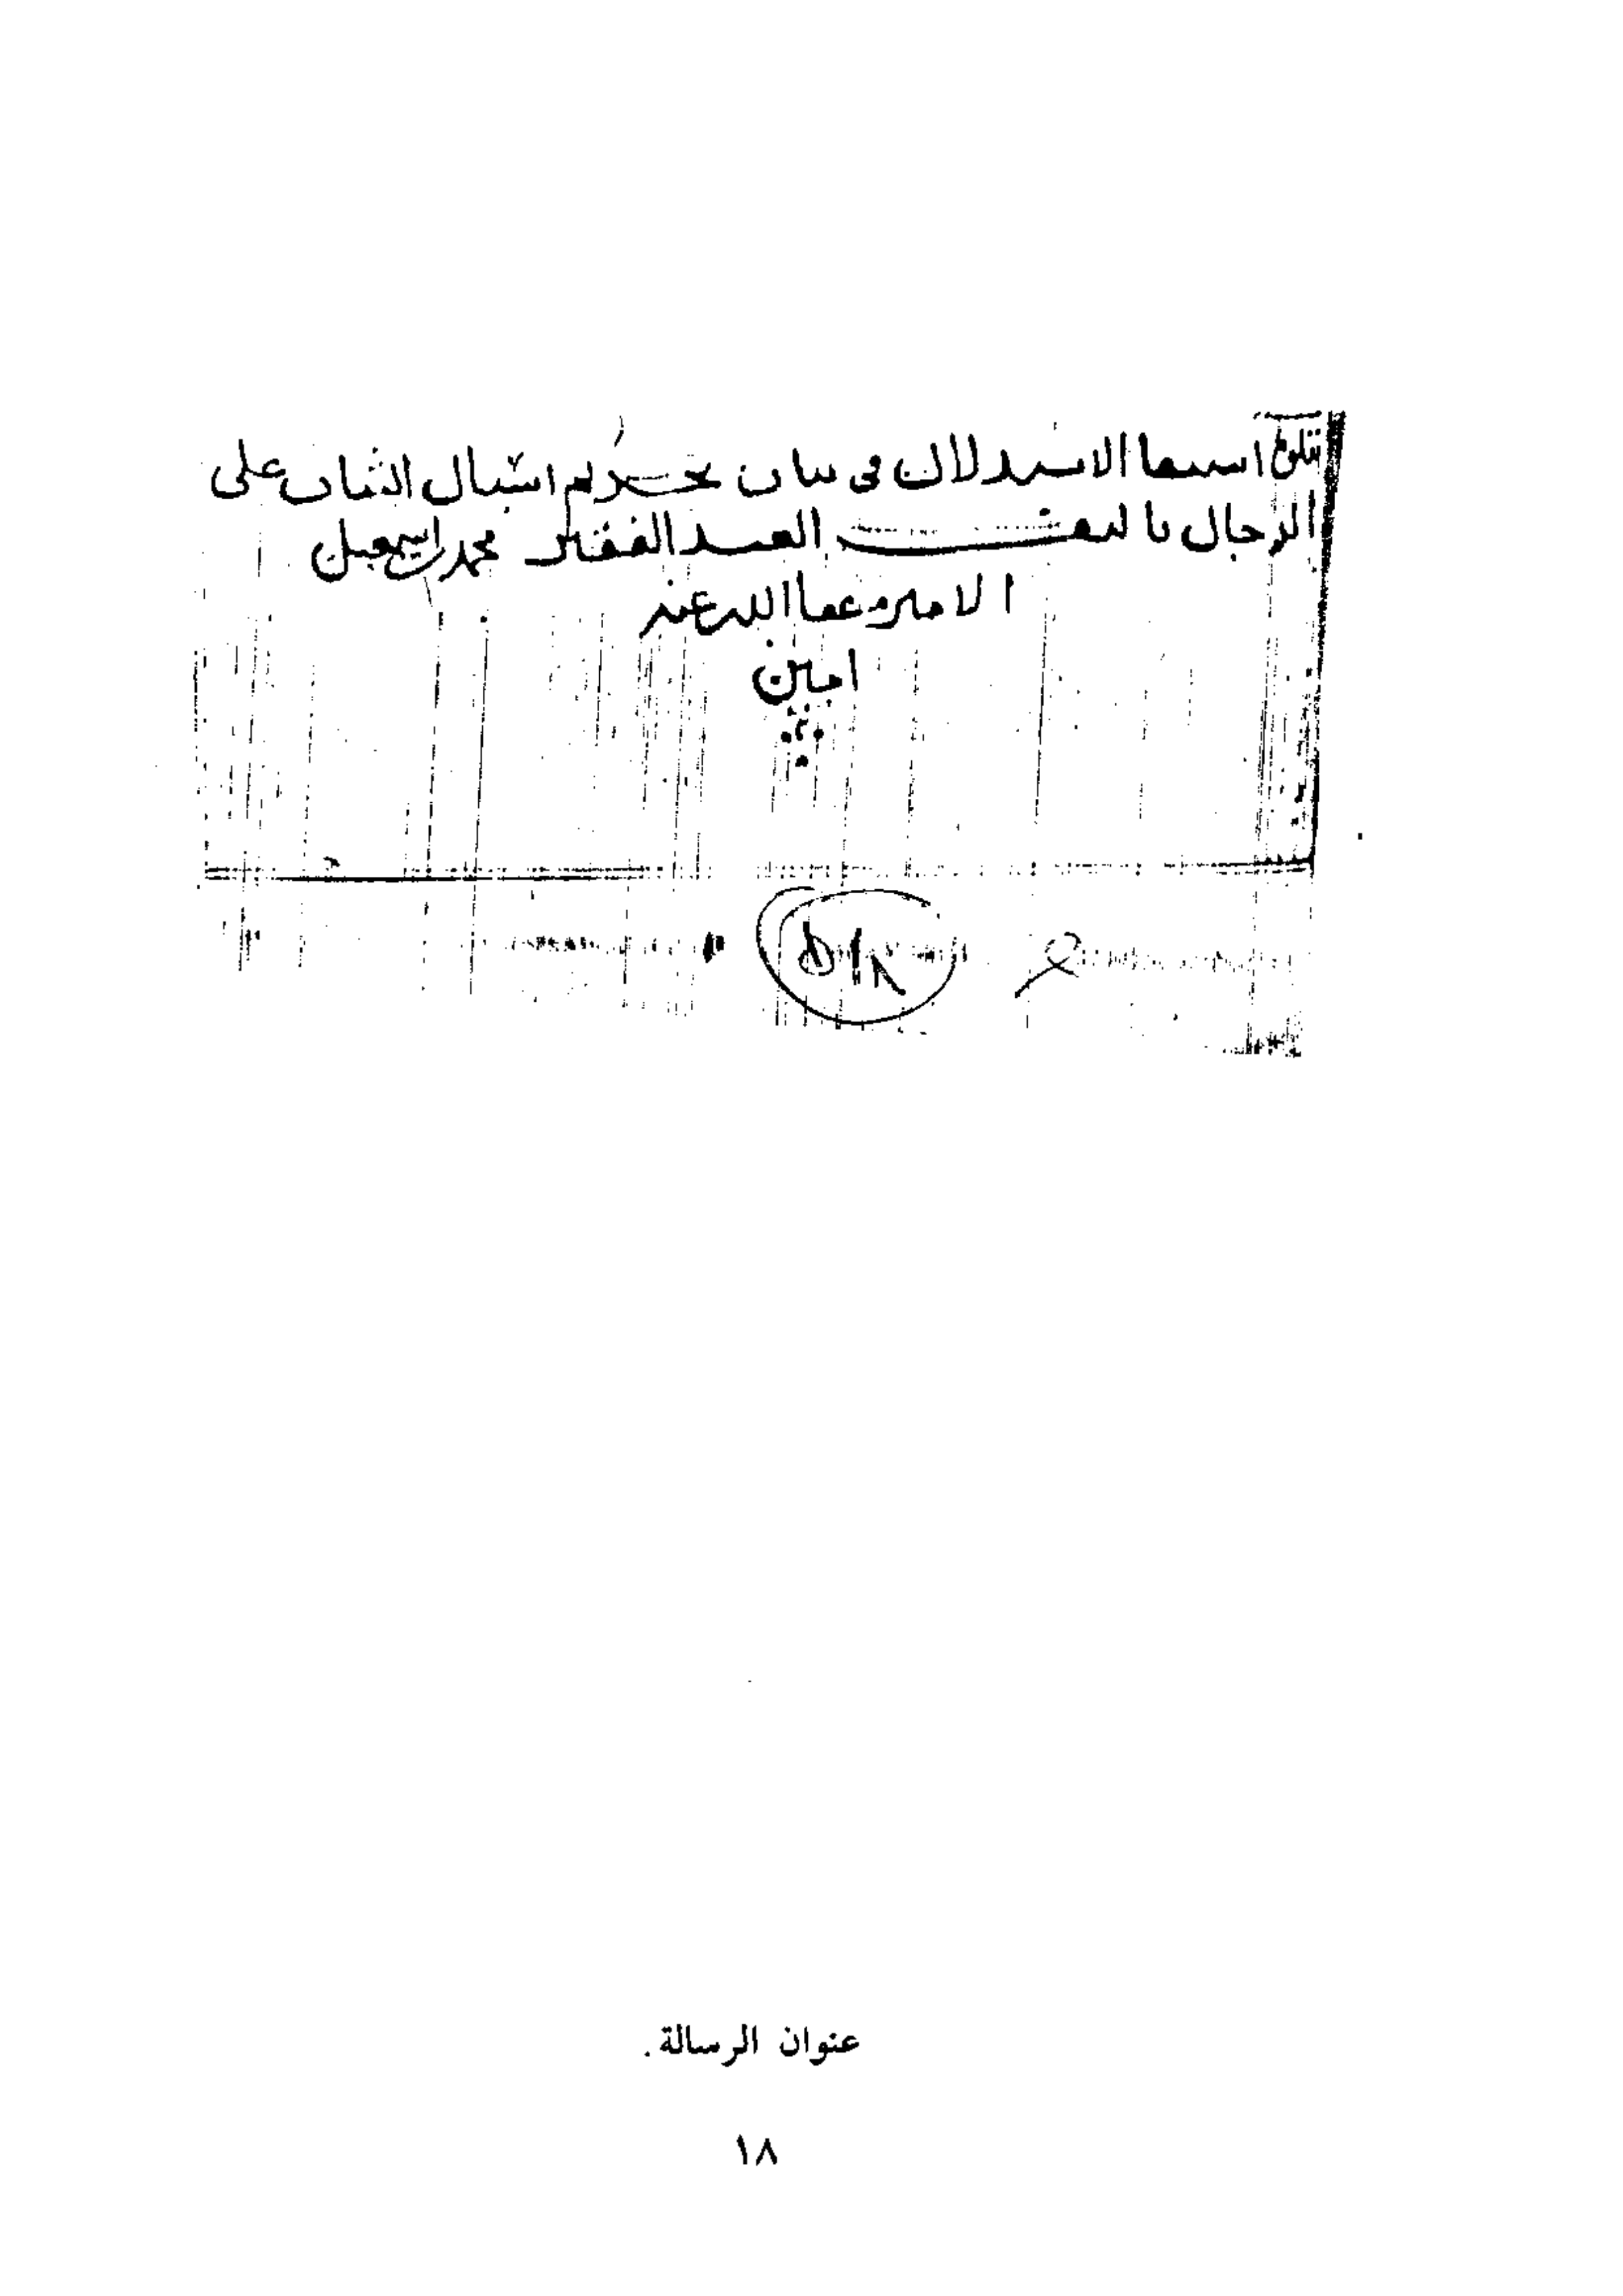 استيفا الاستدلال في بيان تحريم اسبال الثياب على
الرجال تاليف العبد الفقير محمد بن اسمعيل
الامير عفا الله عنه
امين
عنوان الرسالة.
١٨